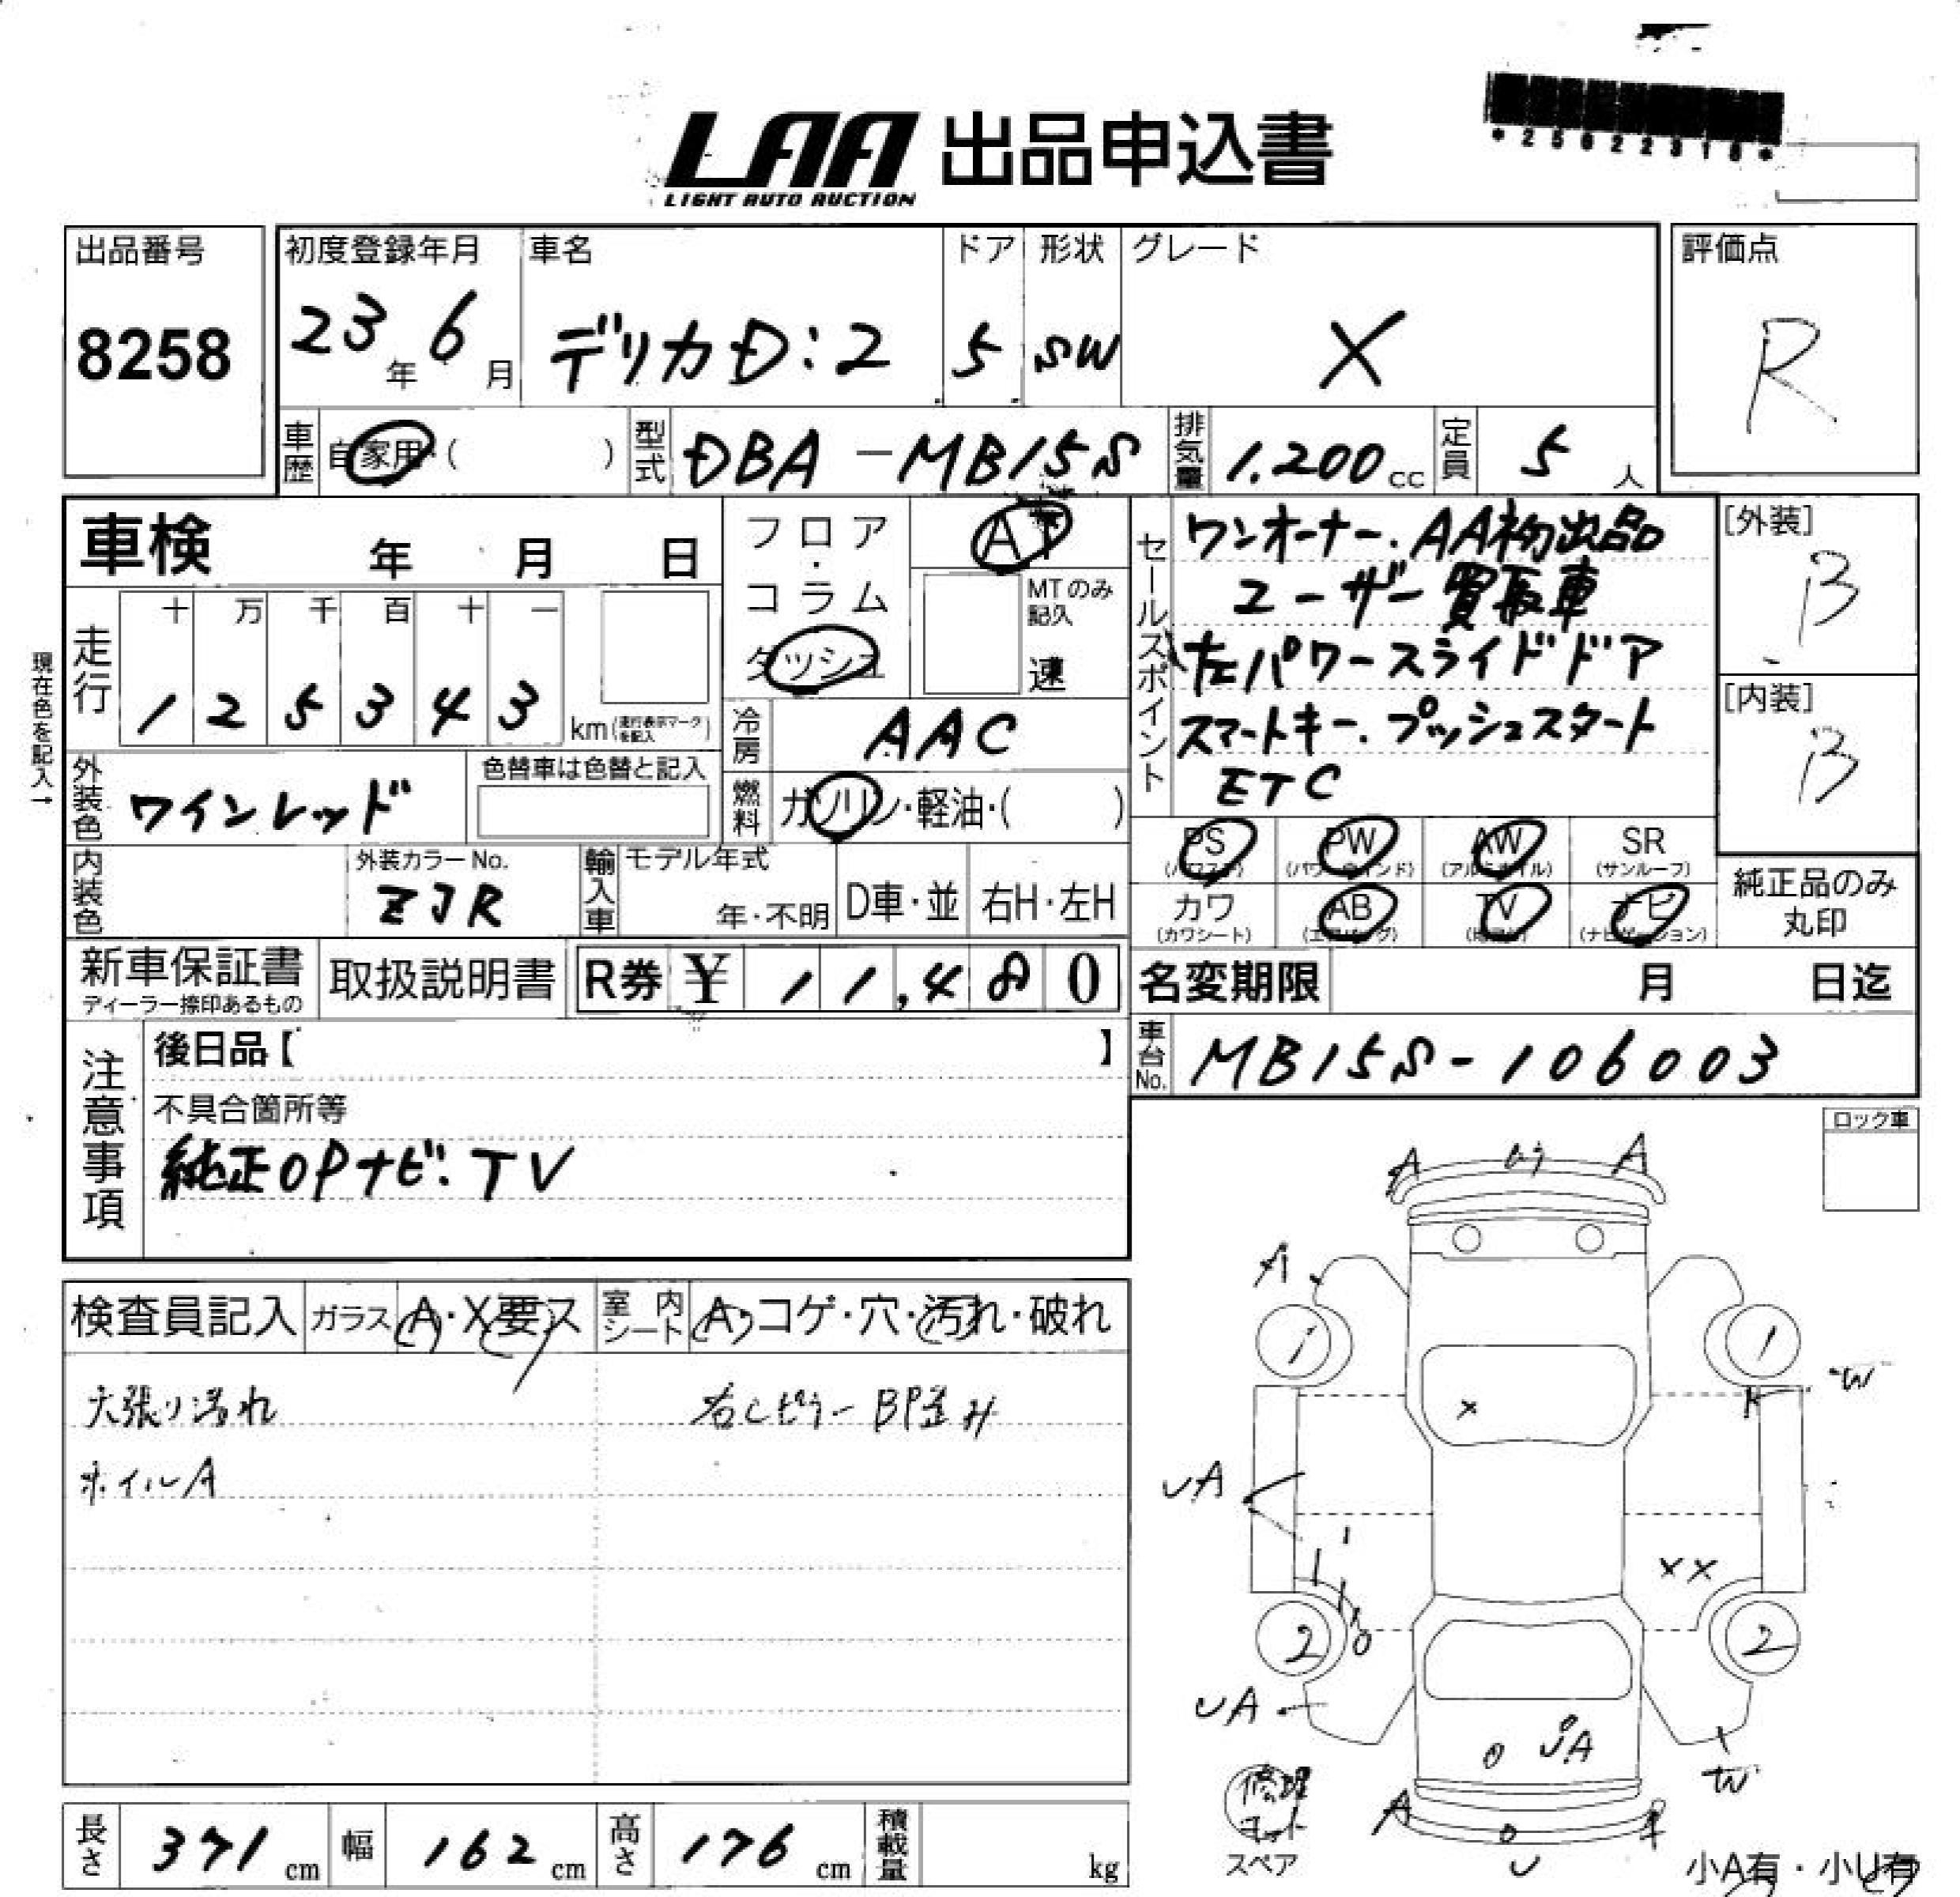 *25022318*
LAA 出品申込書
LIGHT AUTO AUCTION
出品番号
8258
初度登録年月
23年 6月
車名
デリカD:2
ドア
5
形状
SW
グレード
X
評価点
R
車歴 自家用・( )
型式 DBA-MB15S
排気量 1.200cc
定員 5人
車検 年 月 日
フロア・コラム
ダッシュ
AT
MTのみ記入
速
セールスポイント
ワンオーナー.AA初出品
ユーザー買取車
左パワースライドドア
スマートキー.プッシュスタート
ETC
[外装]
B
[内装]
B
現在色を記入→
走行
十 万 千 百 十 一
1 2 5 3 4 3 km(走行表示マークを記入)
冷房 AAC
外装色 ワインレッド
色替車は色替と記入
燃料 ガソリン・軽油・( )
PS PW AW SR
(パワステ) (パワーウィンド) (アルミホイル) (サンルーフ)
カワ AB TV ナビ
(カワシート) (エアバッグ) (ナビゲーション)
純正品のみ
丸印
内装色
外装カラーNo.
ZJR
輸入車
モデル年式
年・不明
D車・並 右H・左H
新車保証書
ディーラー捺印あるもの
取扱説明書
R券 ¥ 11,480
名変期限 月 日迄
車台No. MB15S-106003
注意事項
後日品【 】
不具合箇所等
純正OPナビ.TV
ロック車
検査員記入 ガラス A・X要ス
室内シート A・コゲ・穴・汚れ・破れ
天張り汚れ
右Cピラー BP歪み
ホイルA
A A
A
1 1
W
X
UA
XX
2 2
UA
UA
W
A
U
修理
キット
スペア
小A有・小U有
長さ 371cm
幅 162cm
高さ 176cm
積載量 kg